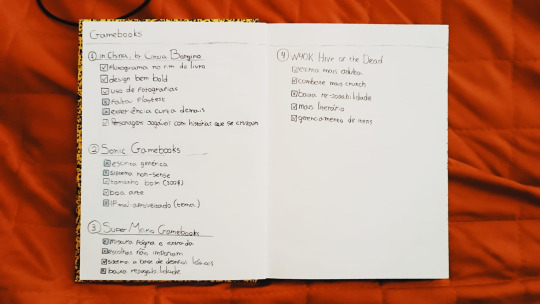 Gamebooks
1 in China, by Linzia Bongino
fluxograma no fim do livro
design bem bold
uso de fotografias
falta playtest
experiência curta demais
Personagens jogáveis com histórias que se cruzam
2 Sonic Gamebooks
escrita genérica
sistema non-sense
tamanho bom (300§)
boa arte
IP mal-aproveitado (tema)
3 Super Mario Gamebooks
mistura página e entrada
escolhas não importam
sistema a base de desafios lógicos
baixa rejogabilidade
4 W40K Hive of the Dead
escrita mais adulta
combate mais crunch
baixa rejogabilidade
mais literário
gerenciamento de itens